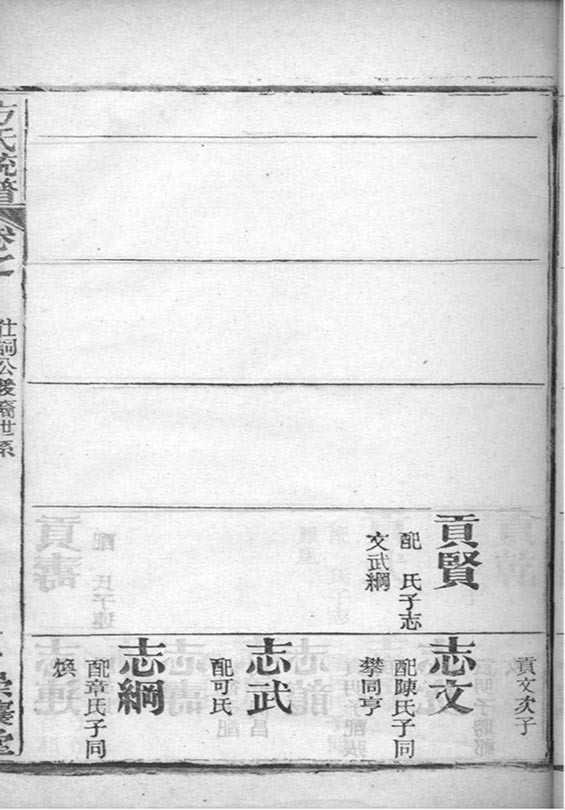 貢賢
配　氏子志
文武綱
貢文次子
志文
配陳氏子同
攀同亨
志武
配可氏
志綱
配章氏子同
煥
方氏統譜
仕詞公後裔世系